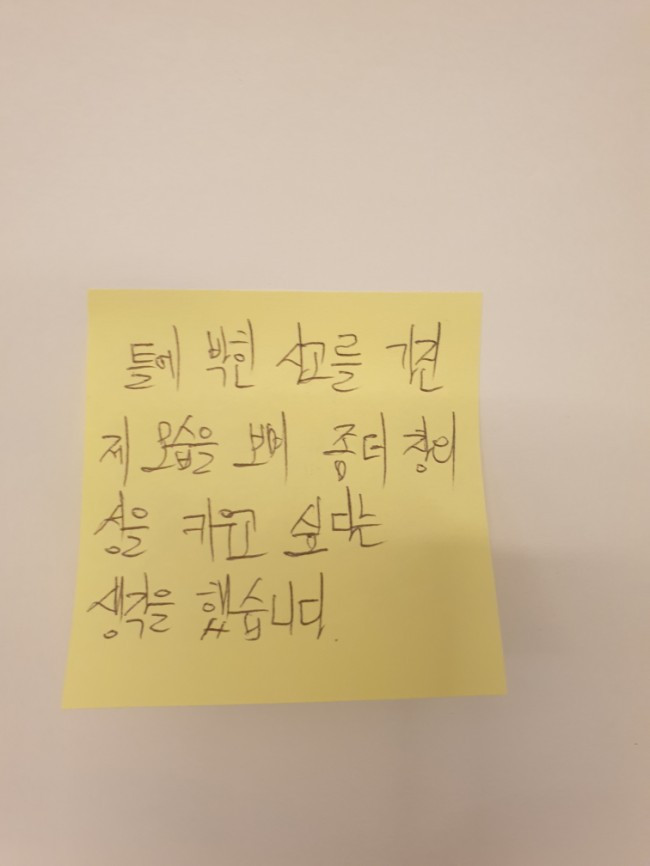 틀에 박힌 사고를 가진
제 모습을 보며 좀더 창의
성을 키우고 싶다는
생각을 했습니다.